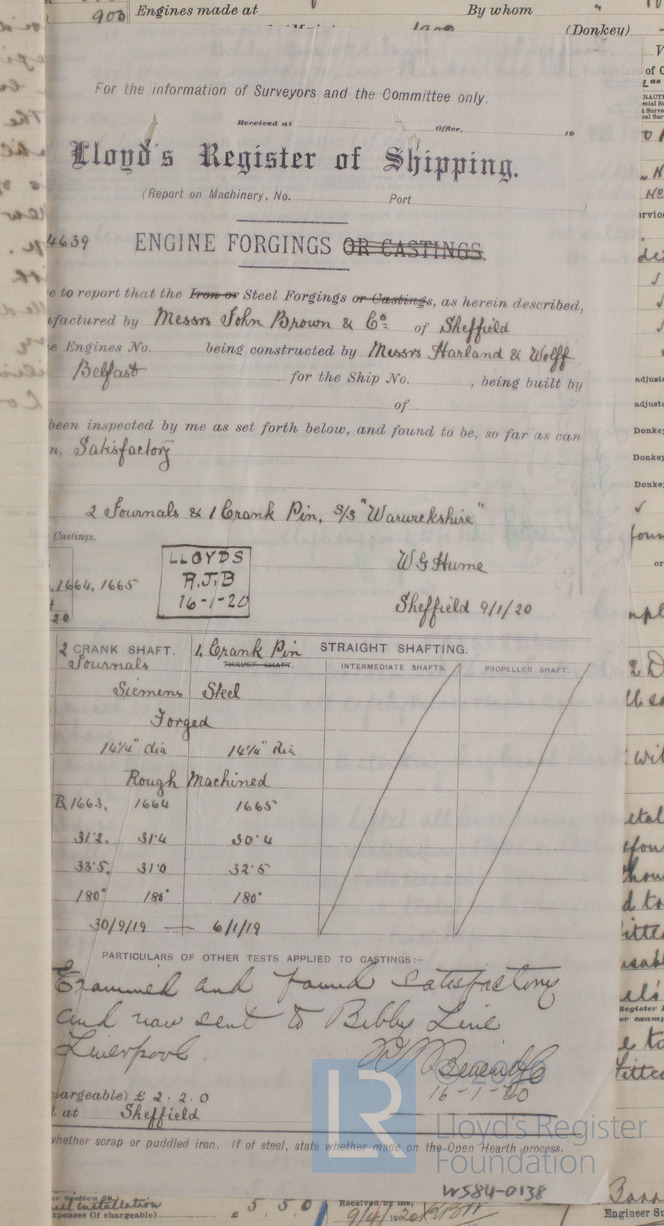 903 Engines made at By whom "
(Donkey)
For the information of Surveyors and the Committee only.
Received at Office, 19
Lloyd's Register of Shipping.
(Report on Machinery, No. Port
4639 ENGINE FORGINGS OR CASTINGS.
e to report that the Iron or Steel Forgings or Castings, as herein described,
ufactured by Messrs John Brown & Co. of Sheffield
e Engines No. being constructed by Messrs Harland & Wolff
Belfast for the Ship No. , being built by
of
been inspected by me as set forth below, and found to be, so far as can
n, Satisfactory
2 Journals & 1 Crank Pin, S/S "Warwickshire"
Castings.
LLOYDS
R.J.B
16-1-20
W G Hume
1664, 1665
20
Sheffield 9/1/20
2 CRANK SHAFT. 1. Crank Pin STRAIGHT SHAFTING.
Journals THRUST SHAFT. INTERMEDIATE SHAFTS. PROPELLER SHAFT.
Siemens Steel
Forged
14¼" dia 14¼" dia
Rough Machined
B, 1663, 1664 1665
31.2. 31.4 30.4
33.5, 31.0 32.5
180° 180° 180°
30/9/19 — 6/1/19
PARTICULARS OF OTHER TESTS APPLIED TO CASTINGS:-
Examined and found satisfactory
and now sent to Bibby Line
Liverpool.
16-1-20
hargeable) £ 2. 2. 0
l at Sheffield
whether scrap or puddled iron. If of steel, state whether made on the Open Hearth process.
LR
© 2020
Lloyd's Register
Foundation
WS84-0138
installation
xpenses (if chargeable) £ 5 5 0 Received by me,
9/4/1920
Engineer Su